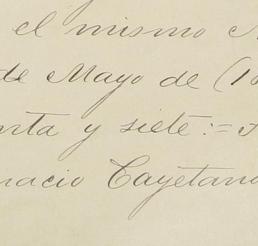 el mismo
de Mayo de (18
nta y siete:=
nacio Cayetano